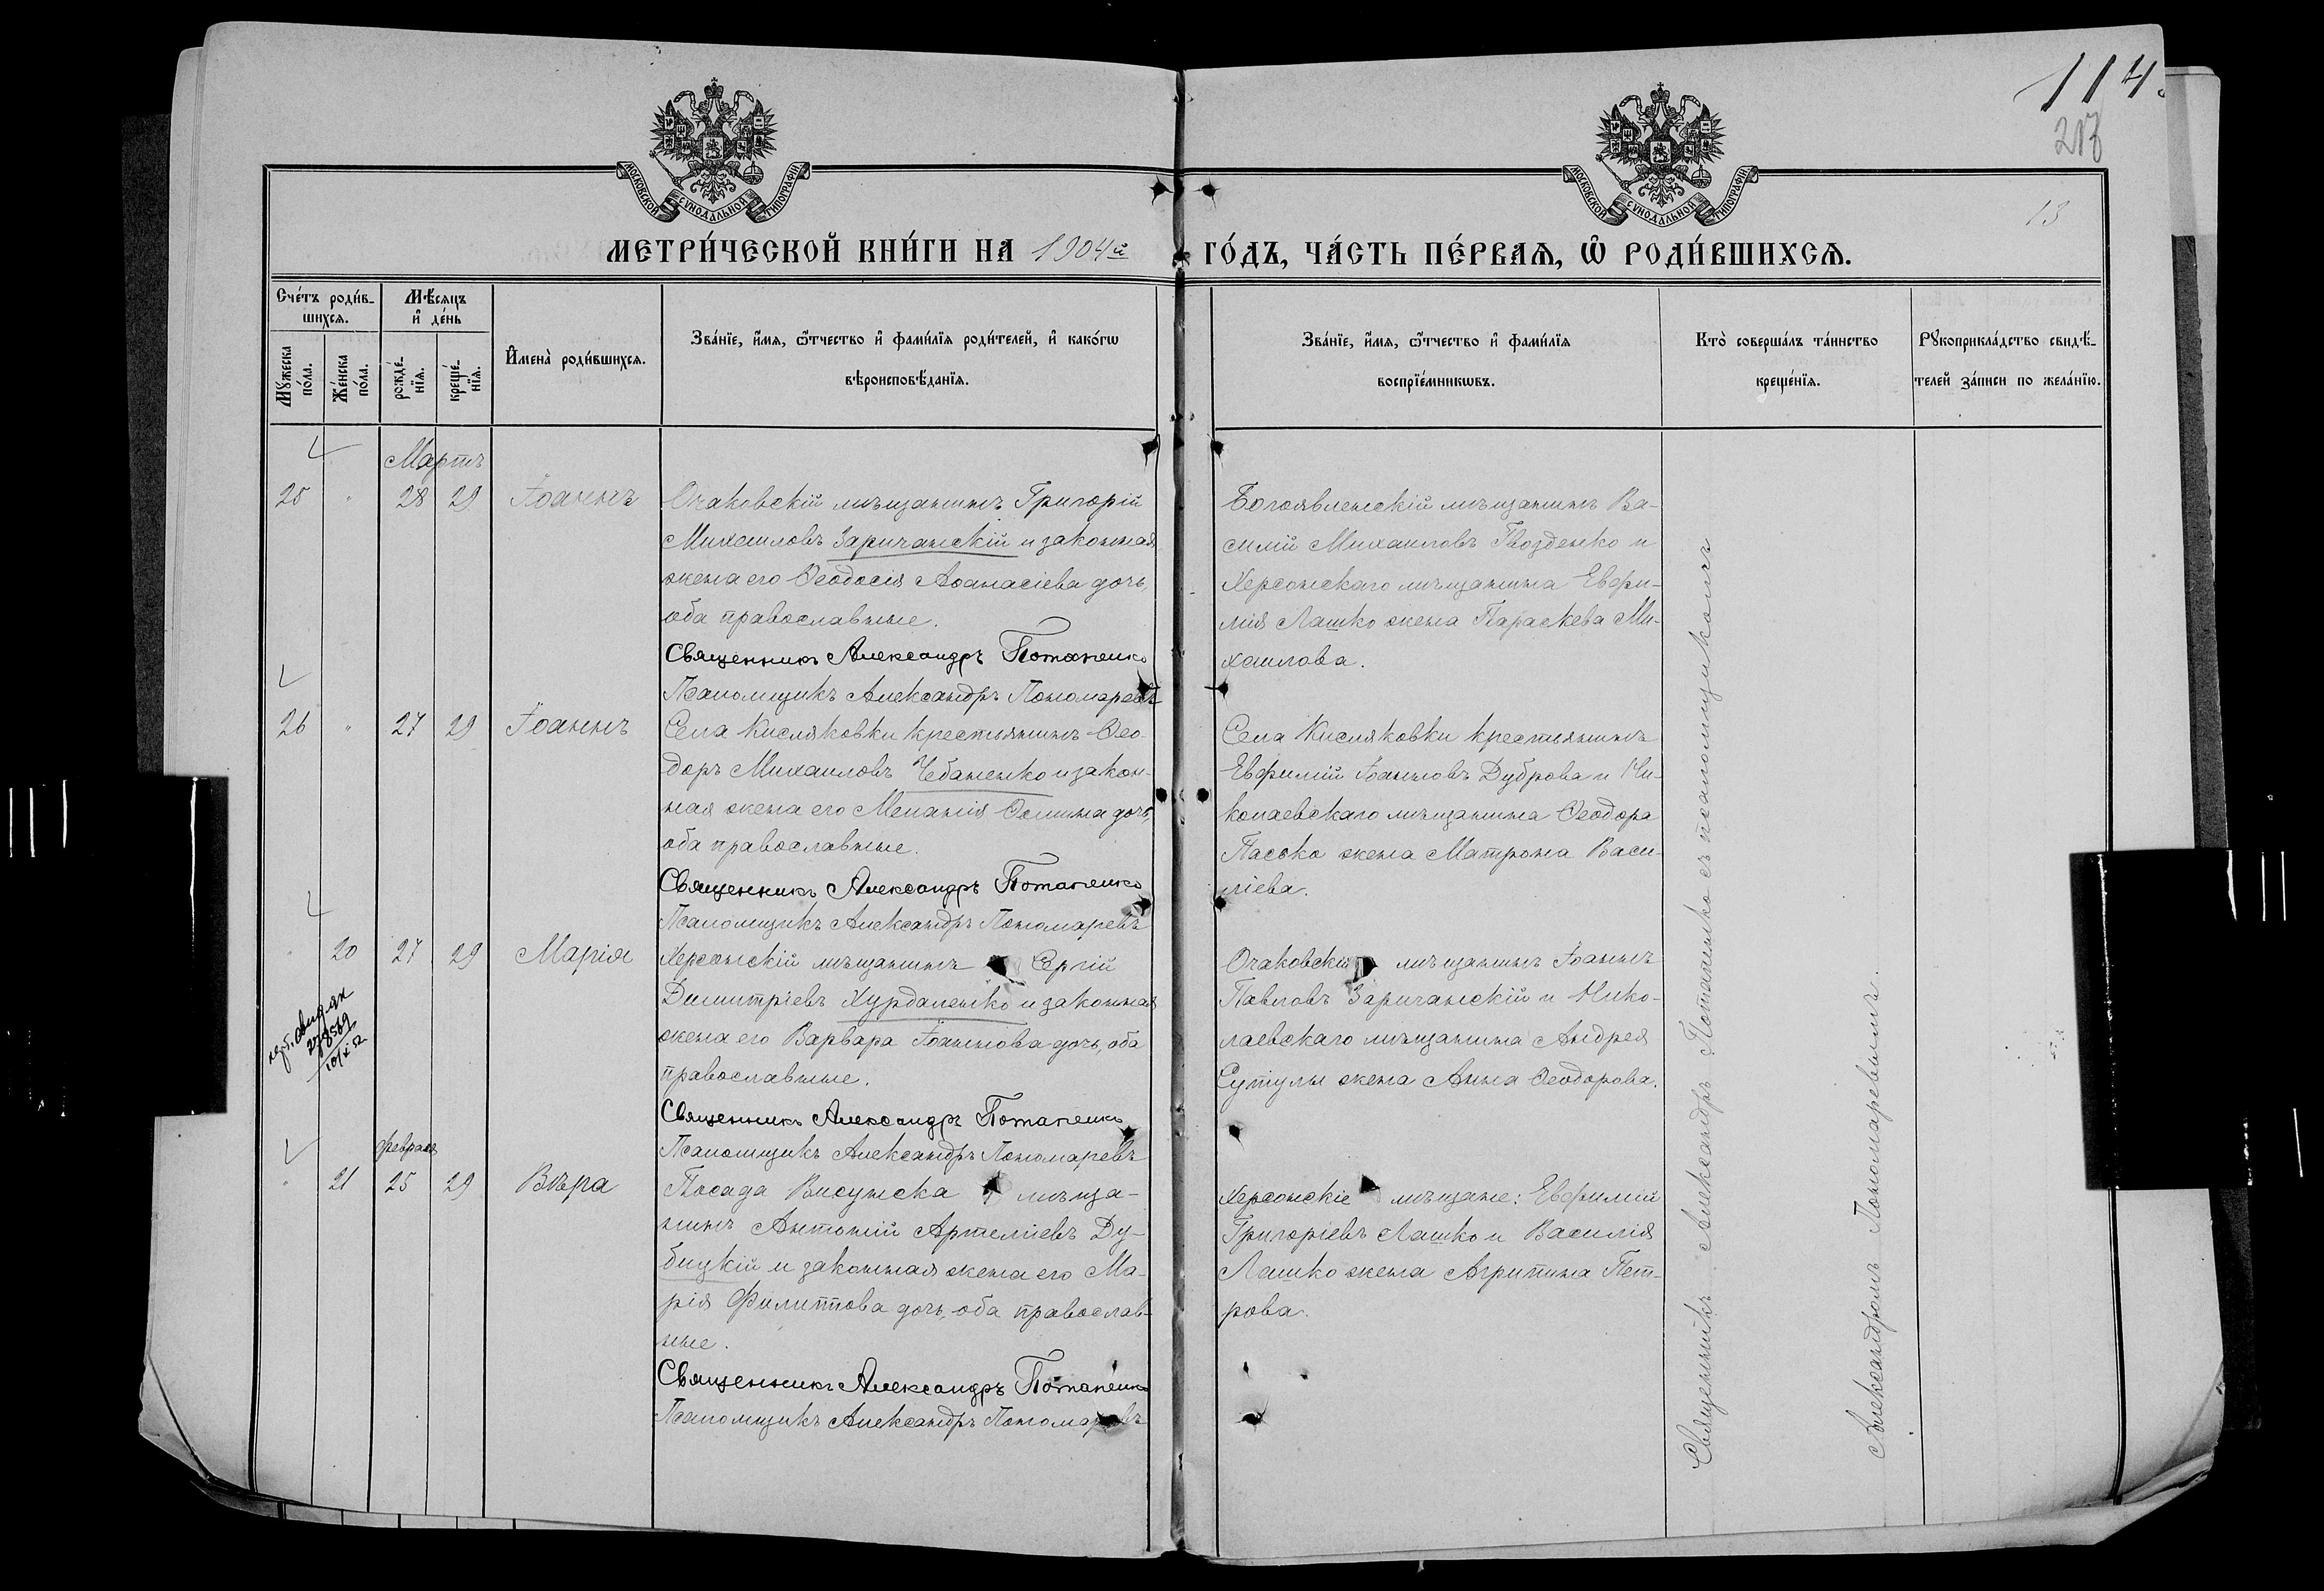 114.
213
13
МОСКОВСКОЙ СУНОДАЛЬНОЙ ТИПОГРАФІИ
МОСКОВСКОЙ СУНОДАЛЬНОЙ ТИПОГРАФІИ
МЕТРИ́ЧЕСКОЙ КНИ́ГИ НА 1904й ГО́ДЪ, ЧА́СТЬ ПЕ́РВАѦ, Ѽ РОДИ́ВШИХСѦ.
Сче́тъ роди́в-
шихсѧ.
Мꙋ́жеска по́ла.
Же́нска по́ла.
Мѣ́сѧцъ
и҆ де́нь
рожде́-
нїѧ.
креще́-
нїѧ.
И҆мена̀ роди́вшихсѧ.
Зва́нїе, и҆́мѧ, ѻ҆́тчество и҆ фами́лїѧ роди́телей, и҆ како́гѡ
вѣроисповѣ́данїѧ.
Зва́нїе, и҆́мѧ, ѻ҆́тчество и҆ фами́лїѧ
воспрїе́мникѡвъ.
Кто̀ соверша́лъ та́инство
креще́нїѧ.
Рꙋкоприкла́дство свидѣ́-
телей за́писи по жела́нїю.
Мартъ
25 " 28 29 Іоаннъ
Очаковскій мѣщанинъ Григорій
Михаиловъ Заричанскій и законная
жена его Ѳеодосія Аѳанасіева дочь,
оба православные.
Священникъ Александръ Потапенко
Псаломщикъ Александръ Пономаревъ
Богоявленскій мѣщанинъ Ва-
силій Михаиловъ Гвозденко и
Херсонскаго мѣщанина Евфи-
мія Лашко жена Параскева Ми-
хаилова.
26 " 27 29 Іоаннъ
Села Кисляковки крестьянинъ Ѳео-
доръ Михаиловъ Чебаненко и закон-
ная жена его Меланія Ѳомина дочь,
оба православные.
Священникъ Александръ Потапенко
Псаломщикъ Александръ Пономаревъ
Села Кисляковки крестьянинъ
Евфимій Іоанновъ Дуброва и Ни-
колаевскаго мѣщанина Ѳеодора
Пасько жена Матрона Васи-
ліева.
" 20 27 29 Марія
Херсонскій мѣщанинъ Сергій
Димитріевъ Хурдаленко и законная
жена его Варвара Іоаннова дочь, оба
православные.
Священникъ Александръ Потапенко
Псаломщикъ Александръ Пономаревъ
Очаковскій мѣщанинъ Іоаннъ
Павловъ Заричанскій и Нико-
лаевскаго мѣщанина Андрея
Сутулы жена Анна Ѳеодорова.
278569
10/X 52
Февраля
" 21 25 29 Вѣра
Посада Висунска мѣща-
нинъ Антоній Артеміевъ Ду-
бицкій и законная жена его Ма-
рія Филиппова дочь, оба православ-
ные.
Священникъ Александръ Потапенко
Псаломщикъ Александръ Пономаревъ
Херсонскіе мѣщане: Евфимій
Григоріевъ Лашко и Василія
Лашко жена Агрипина Пет-
рова.
Священникъ Александръ Потапенко съ псаломщикомъ
Александромъ Пономаревымъ.